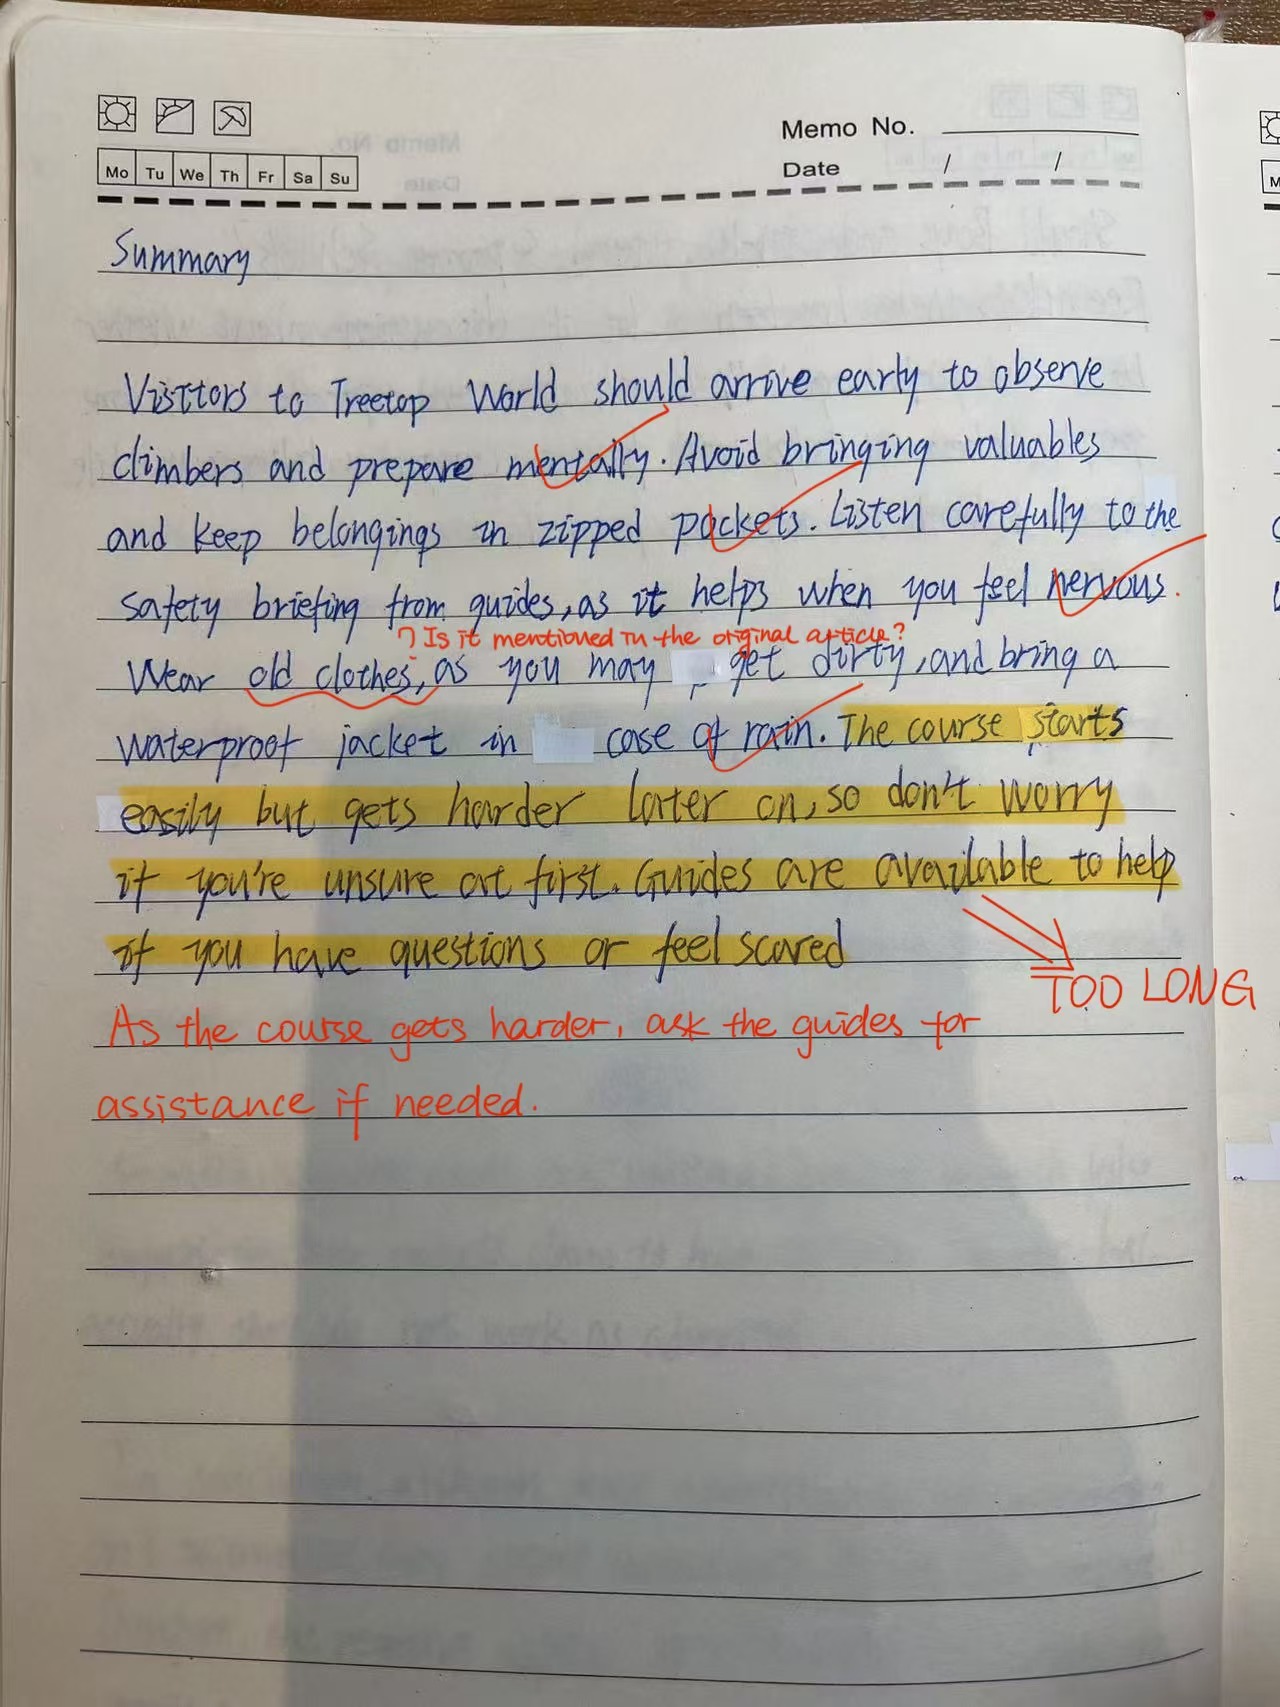 Memo No.
Mo Tu We Th Fr Sa Su
Date / /
Summary
Visitors to Treetop World should arrive early to observe
climbers and prepare mentally. Avoid bringing valuables
and keep belongings in zipped pockets. Listen carefully to the
safety briefing from guides, as it helps when you feel nervous.
? Is it mentioned in the original article?
Wear old clothes, as you may get dirty, and bring a
waterproof jacket in case of rain. The course starts
easily but gets harder later on, so don't worry
if you're unsure at first. Guides are available to help
if you have questions or feel scared
TOO LONG
As the course gets harder, ask the guides for
assistance if needed.